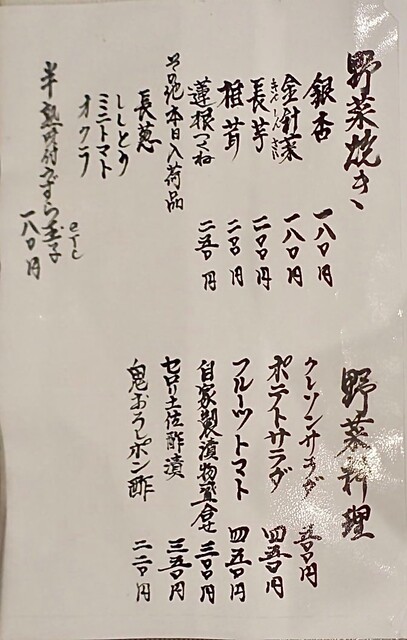 野菜焼き
銀杏 一八〇円
金針菜 一八〇円
きんしんさい
長芋 二〇〇円
椎茸 二〇〇円
蓮根つくね 二五〇円
その他本日入荷品
長葱
ししとう
ミニトマト
オクラ
半熟味付うずら玉子 一八〇円
野菜料理
クレソンサラダ 五〇〇円
ポテトサラダ 四五〇円
フルーツトマト 四五〇円
自家製漬物盛合せ 三〇〇円
セロリ土佐酢漬 三五〇円
鬼おろしポン酢 二二〇円